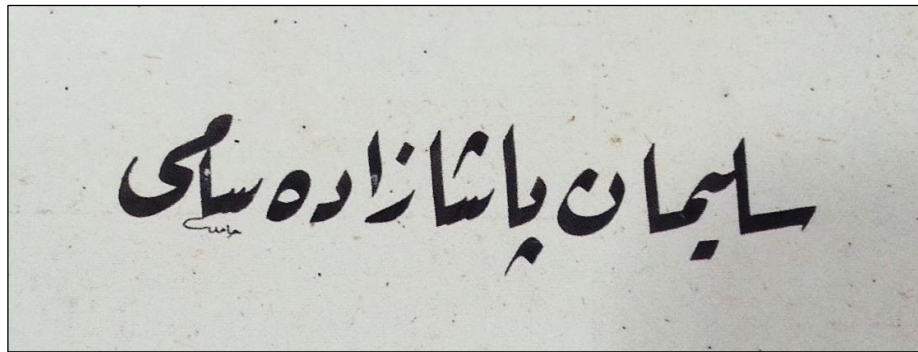 سليمان پاشا زاده سامى
حامد